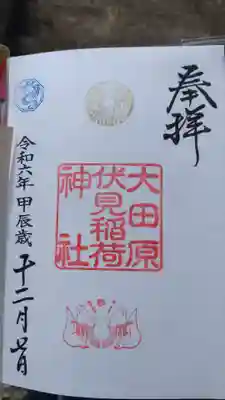 奉拝
大田原
伏見稲荷
神社
令和六年 甲辰歳 十二月